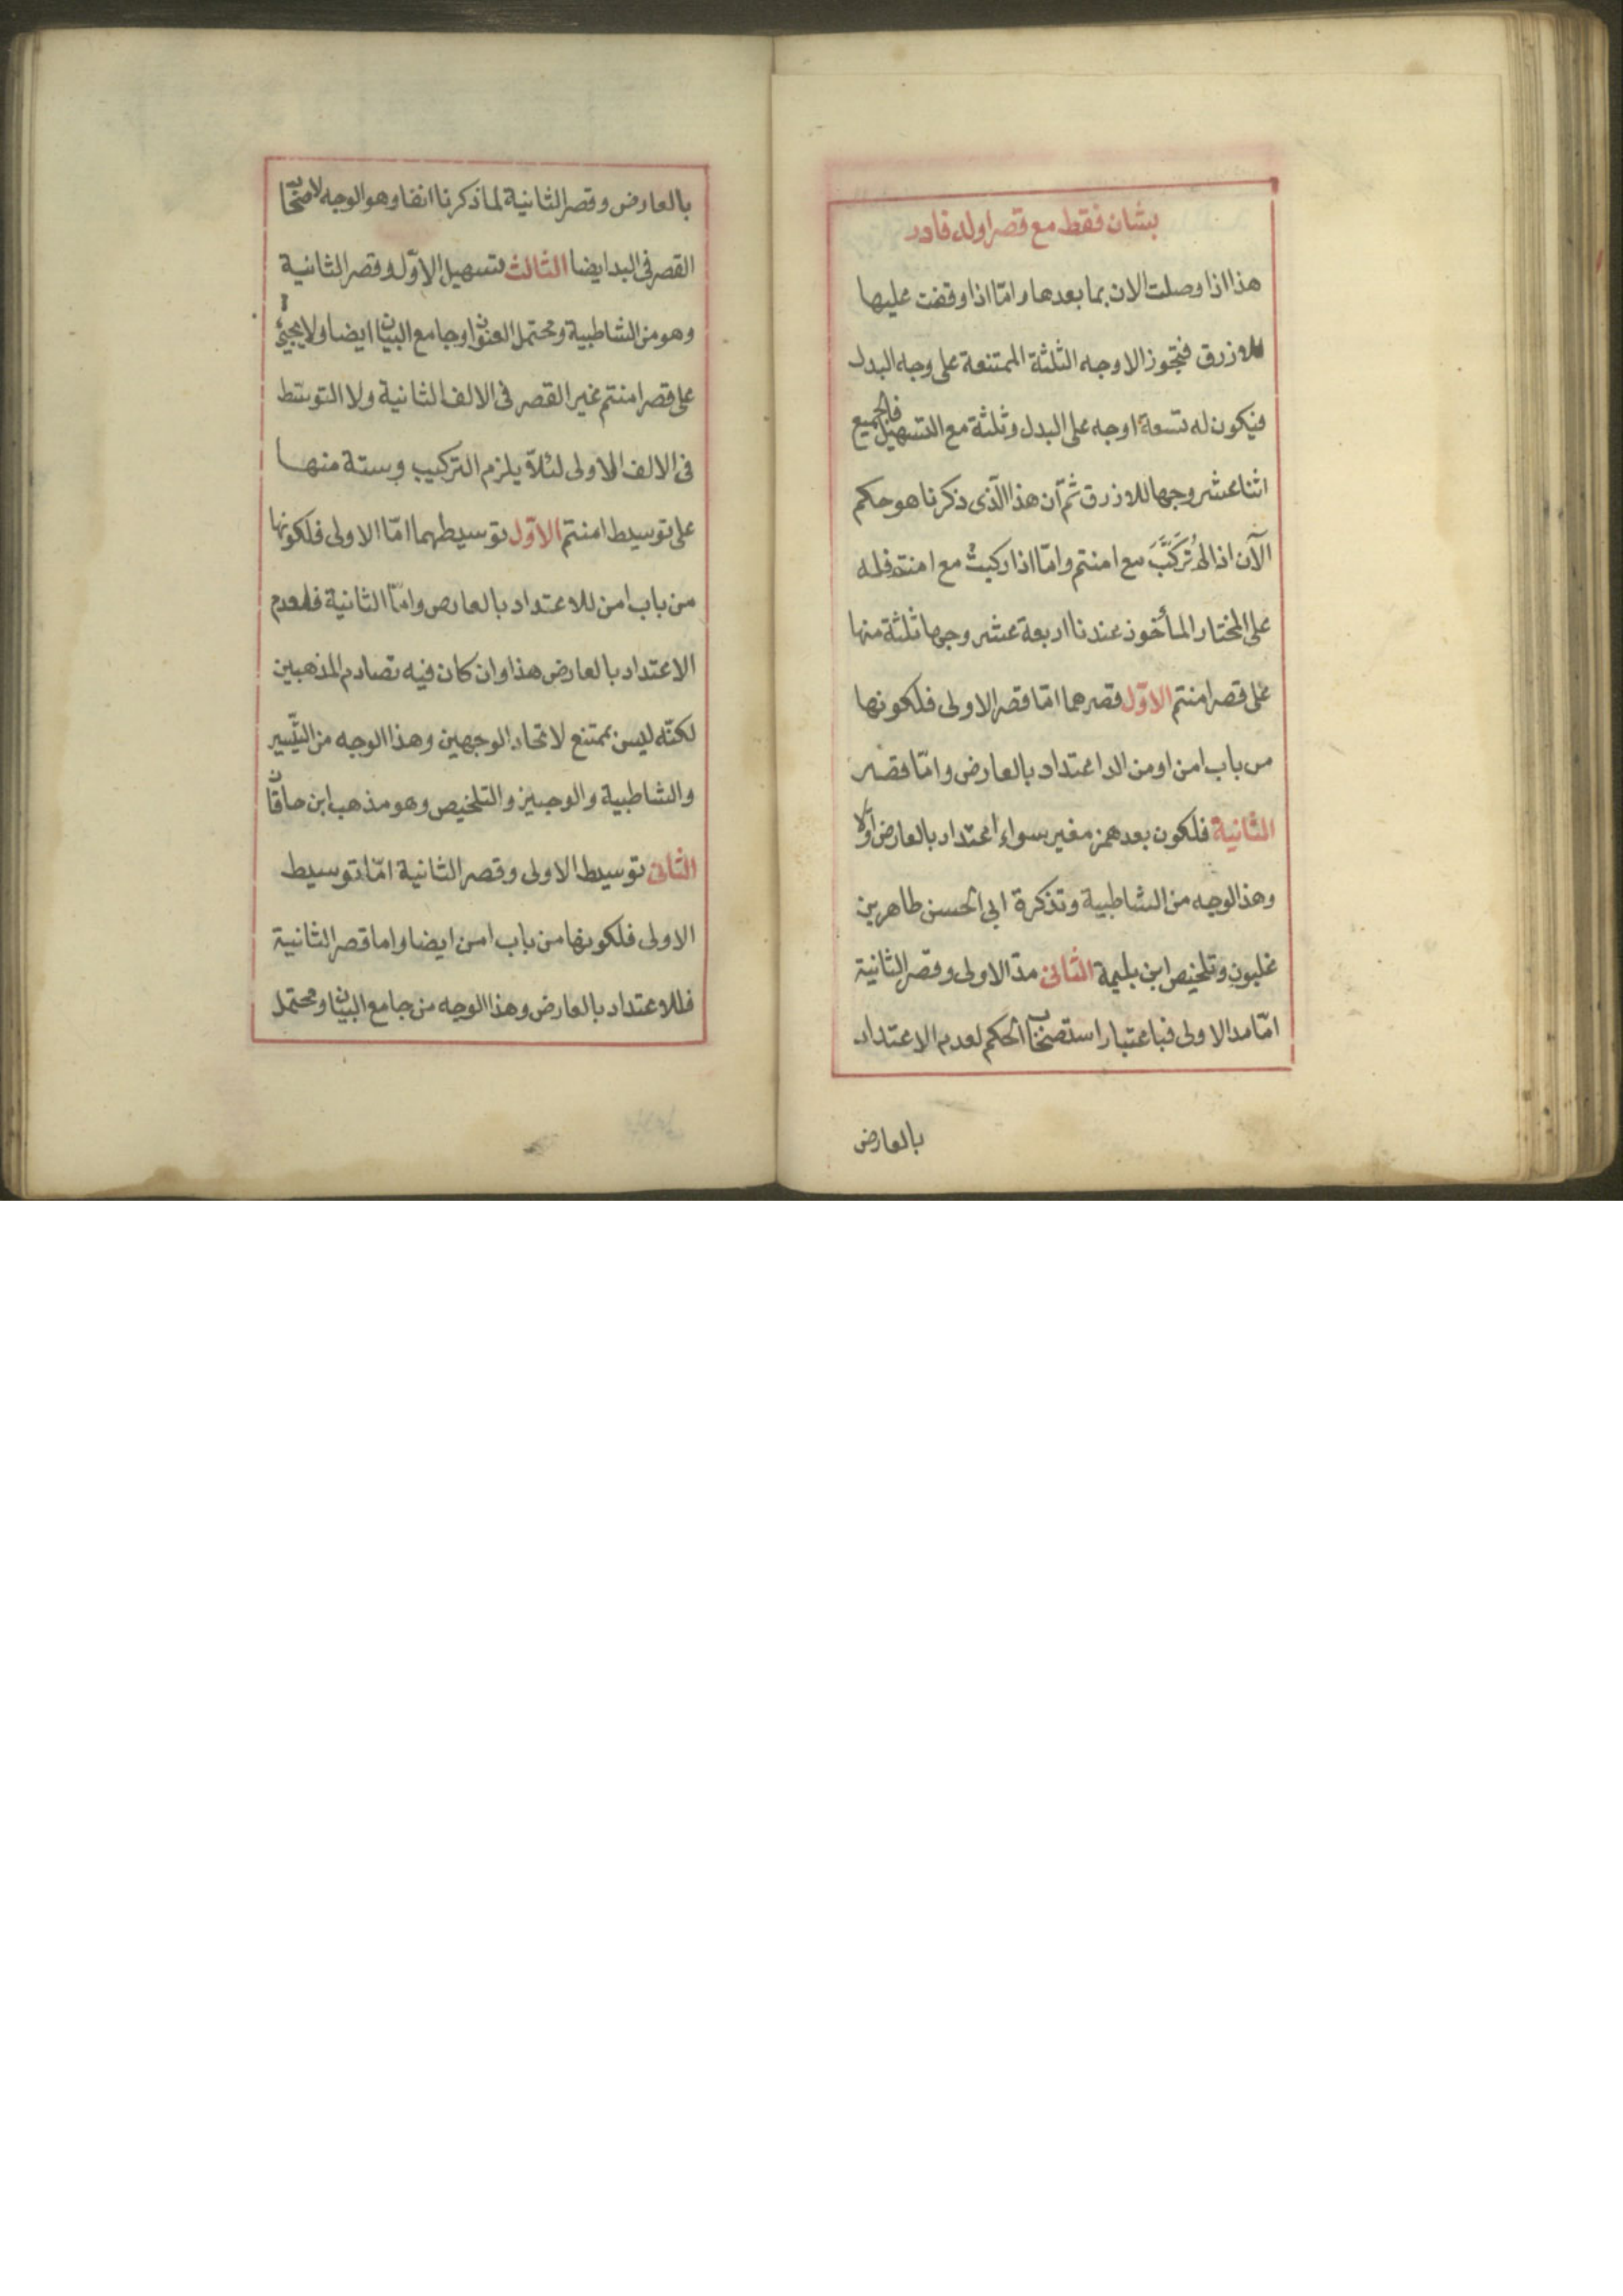 بشان فقط مع قصر اوله قادر
هذا اذا وصلت الان بما بعدها وامّا اذا وقفت عليها
للازرق فتجوز الاوجه الثلثة الممتنعة على وجه البدل
فيكون له تسعة اوجه على البدل وثلثة مع التسهيل فالجميع
اثنا عشر وجها للازرق ثمّ ان هذا الّذى ذكرنا هو حكم
الآن اذا لم تُركَّبَ مع امنتم وامّا اذا ركبتْ مع امنتم فله
على المختار المأخوذ عندنا اربعة عشر وجها ثلثة منها
على قصر امنتم الاوّل قصرهما امّا قصر الاولى فلكونها
من باب امن او من الد اعتداد بالعارض وامّا قصر
الثانية فلكون بعد همز مغير سواء اعتداد بالعارض اولا
وهذا الوجه من الشاطبية وتذكرة ابى الحسن طاهر بن
غلبون وتلخيص ابن بليمة الثانى مدّ الاولى وقصر الثانية
امّا مد الاولى فباعتبار استصحاب الحكم لعدم الاعتداد
بالعارض
بالعارض وقصر الثانية لما ذكرنا انفا وهو الوجه لاصحاب
القصر فى البد ايضا الثالث تسهيل الاوّل وقصر الثانية
وهو من الشاطبية ومحتمل العنوان وجامع البيان ايضا ولا يجيئ
على قصر امنتم غير القصر فى الالف الثانية ولا التوسّط
فى الالف الاولى لئلاّ يلزم التركيب وستة منها
على توسيط امنتم الاوّل توسيطهما امّا الاولى فلكونها
من باب امن للاعتداد بالعارض وامّا الثانية فلعدم
الاعتداد بالعارض هذا وان كان فيه تصادم المذهبين
لكنّه ليس بممتنع لاتحاد الوجهين وهذا الوجه من التّيسير
والشاطبية والوجيز والتلخيص وهو مذهب ابن خاقان
الثانى توسيط الاولى وقصر الثانية امّا توسيط
الاولى فلكونها من باب امن ايضا واما قصر الثانية
فللاعتداد بالعارض وهذا الوجه من جامع البيان ومحتمل